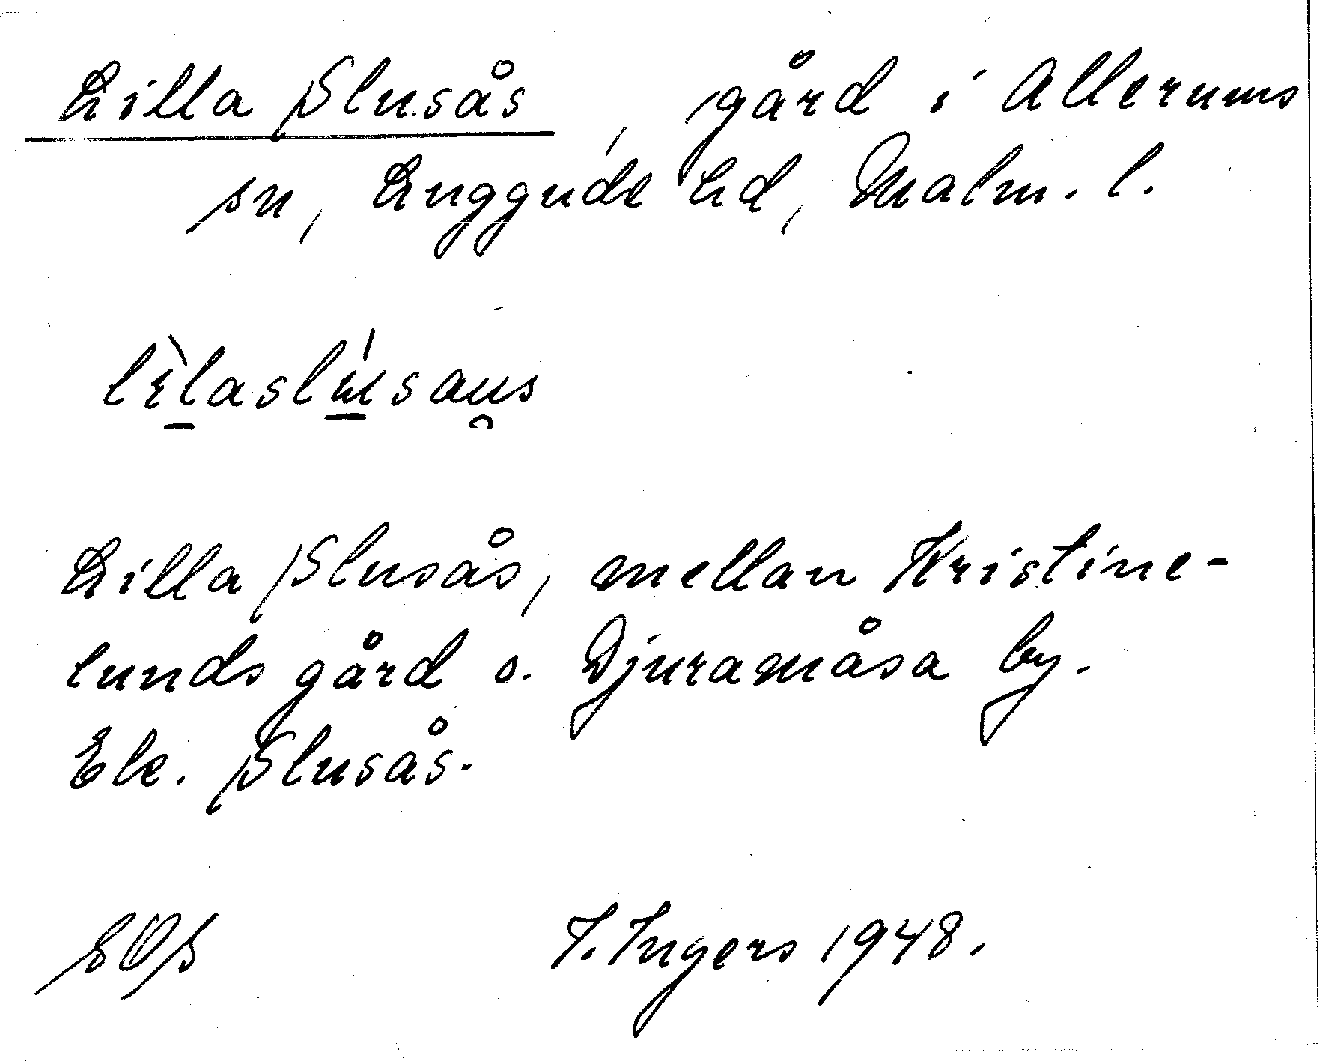 Lilla Slusås, gård i Allerums
sn, Luggude hd, Malm. l.
lèlaslúsaus
Lilla Slusås, mellan Kristine-
lunds gård o. Djuramåsa by.
Ek. Slusås.
SOS I. Ingers 1948.